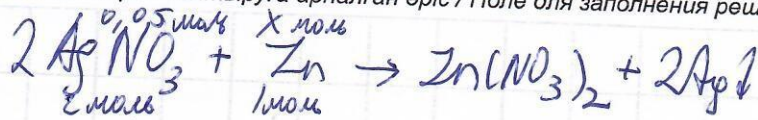 арналған өріс / Поле для заполнения реш
0,05 моль X моль
2 AgNO3 + Zn → Zn(NO3)2 + 2Ag↓
2 моль 1 моль